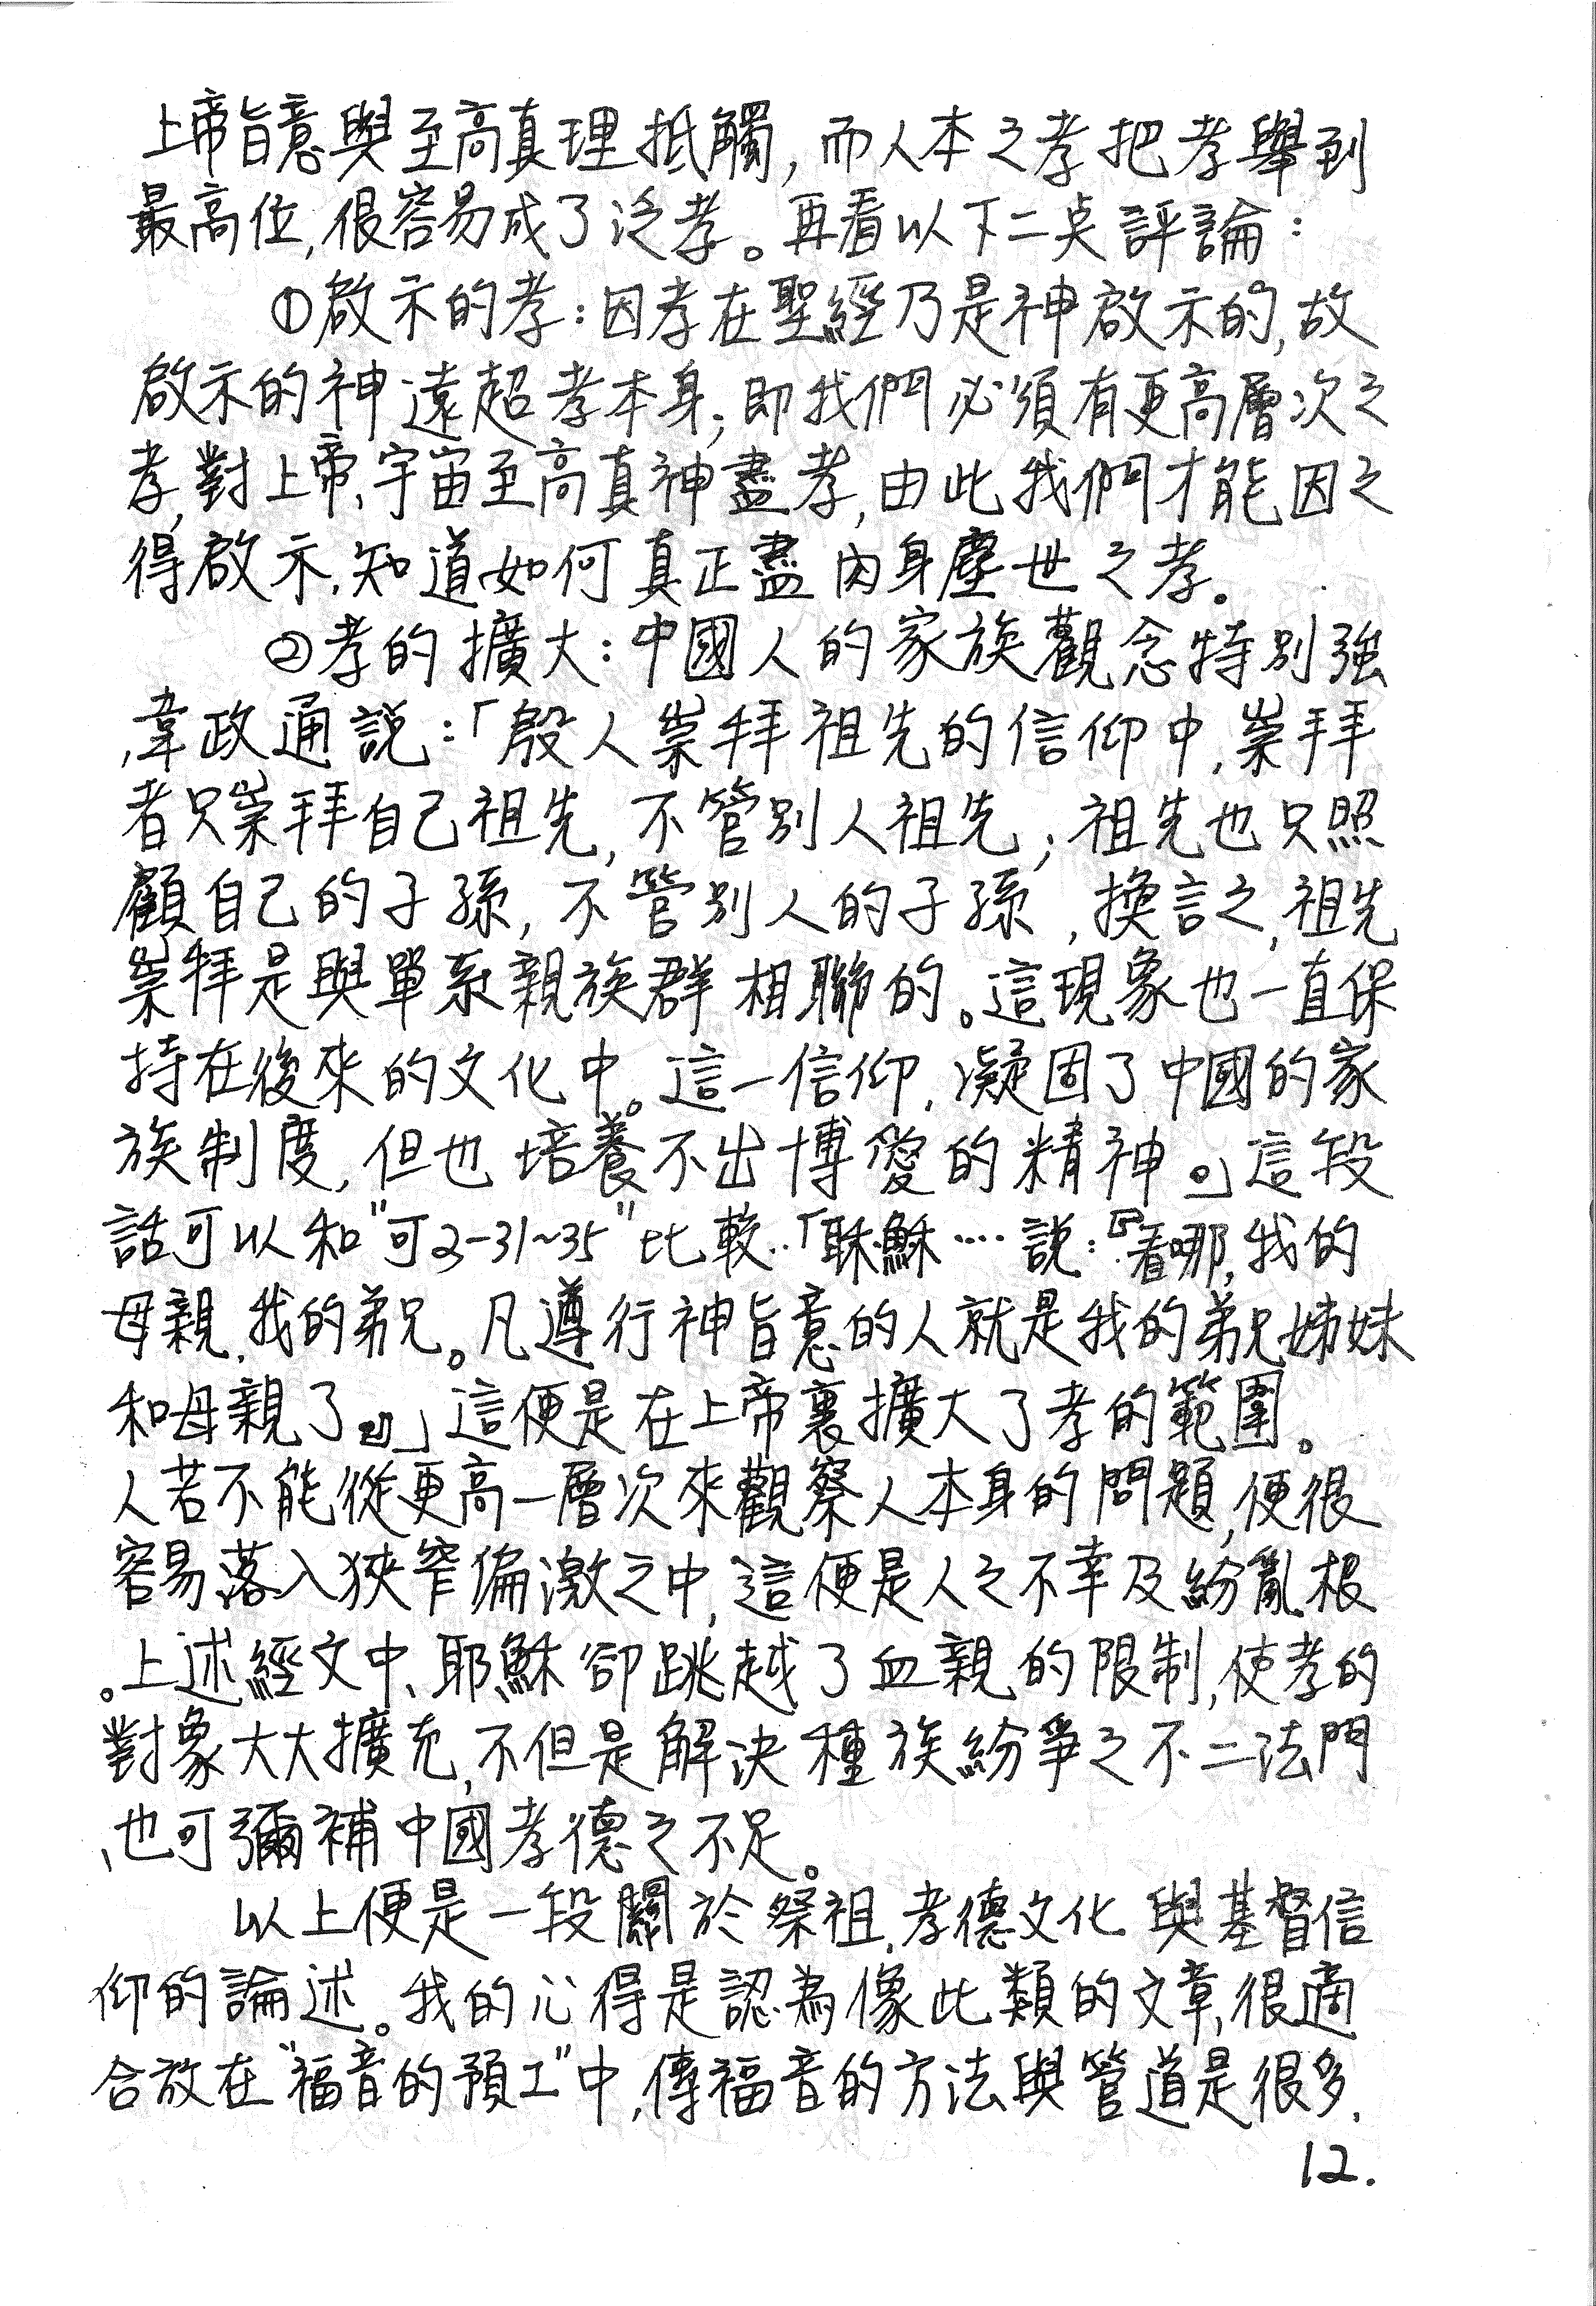 上帝旨意與至高真理抵觸,而人本之孝把孝舉到
最高位,很容易成了泛孝。再看以下二点評論:
①啟示的孝:因孝在聖經乃是神啟示的,故
啟示的神遠超孝本身;即我們必須有更高層次之
孝,對上帝、宇宙至高真神盡孝,由此我們才能因之
得啟示,知道如何真正盡肉身塵世之孝。
②孝的擴大:中國人的家族觀念特別強
,韋政通說:「殷人崇拜祖先的信仰中,崇拜
者只崇拜自己祖先,不管別人祖先;祖先也只照
顧自己的子孫,不管別人的子孫,換言之,祖先
崇拜是與單系親族群相聯的。這現象也一直保
持在後來的文化中。這一信仰,凝固了中國的家
族制度,但也培養不出博愛的精神。」這段
話可以和"可2-31~35"比較..「耶穌····說:『看哪,我的
母親,我的弟兄。凡遵行神旨意的人就是我的弟兄姊妹
和母親了。』」這便是在上帝裏擴大了孝的範圍。
人若不能從更高一層次來觀察人本身的問題,便很
容易落入狹窄偏激之中,這便是人之不幸及紛亂根
。上述經文中、耶穌卻跳越了血親的限制,使孝的
對象大大擴充,不但是解決種族紛爭之不二法門
、也可彌補中國孝德之不足。
以上便是一段關於祭祖,孝德文化與基督信
仰的論述。我的心得是認為像此類的文章,很適
合放在"福音的預工"中,傳福音的方法與管道是很多,
12.